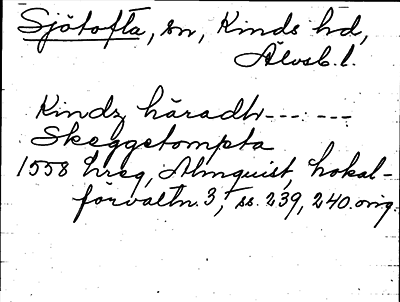 Sjötofta, sn, Kinds hd,
Älvsb. l.
Kindz häradh --- : ---
Skeggetompta
1558 hreg, Almquist, Lokal-
förvaltn. 3, ss. 239, 240. orig.